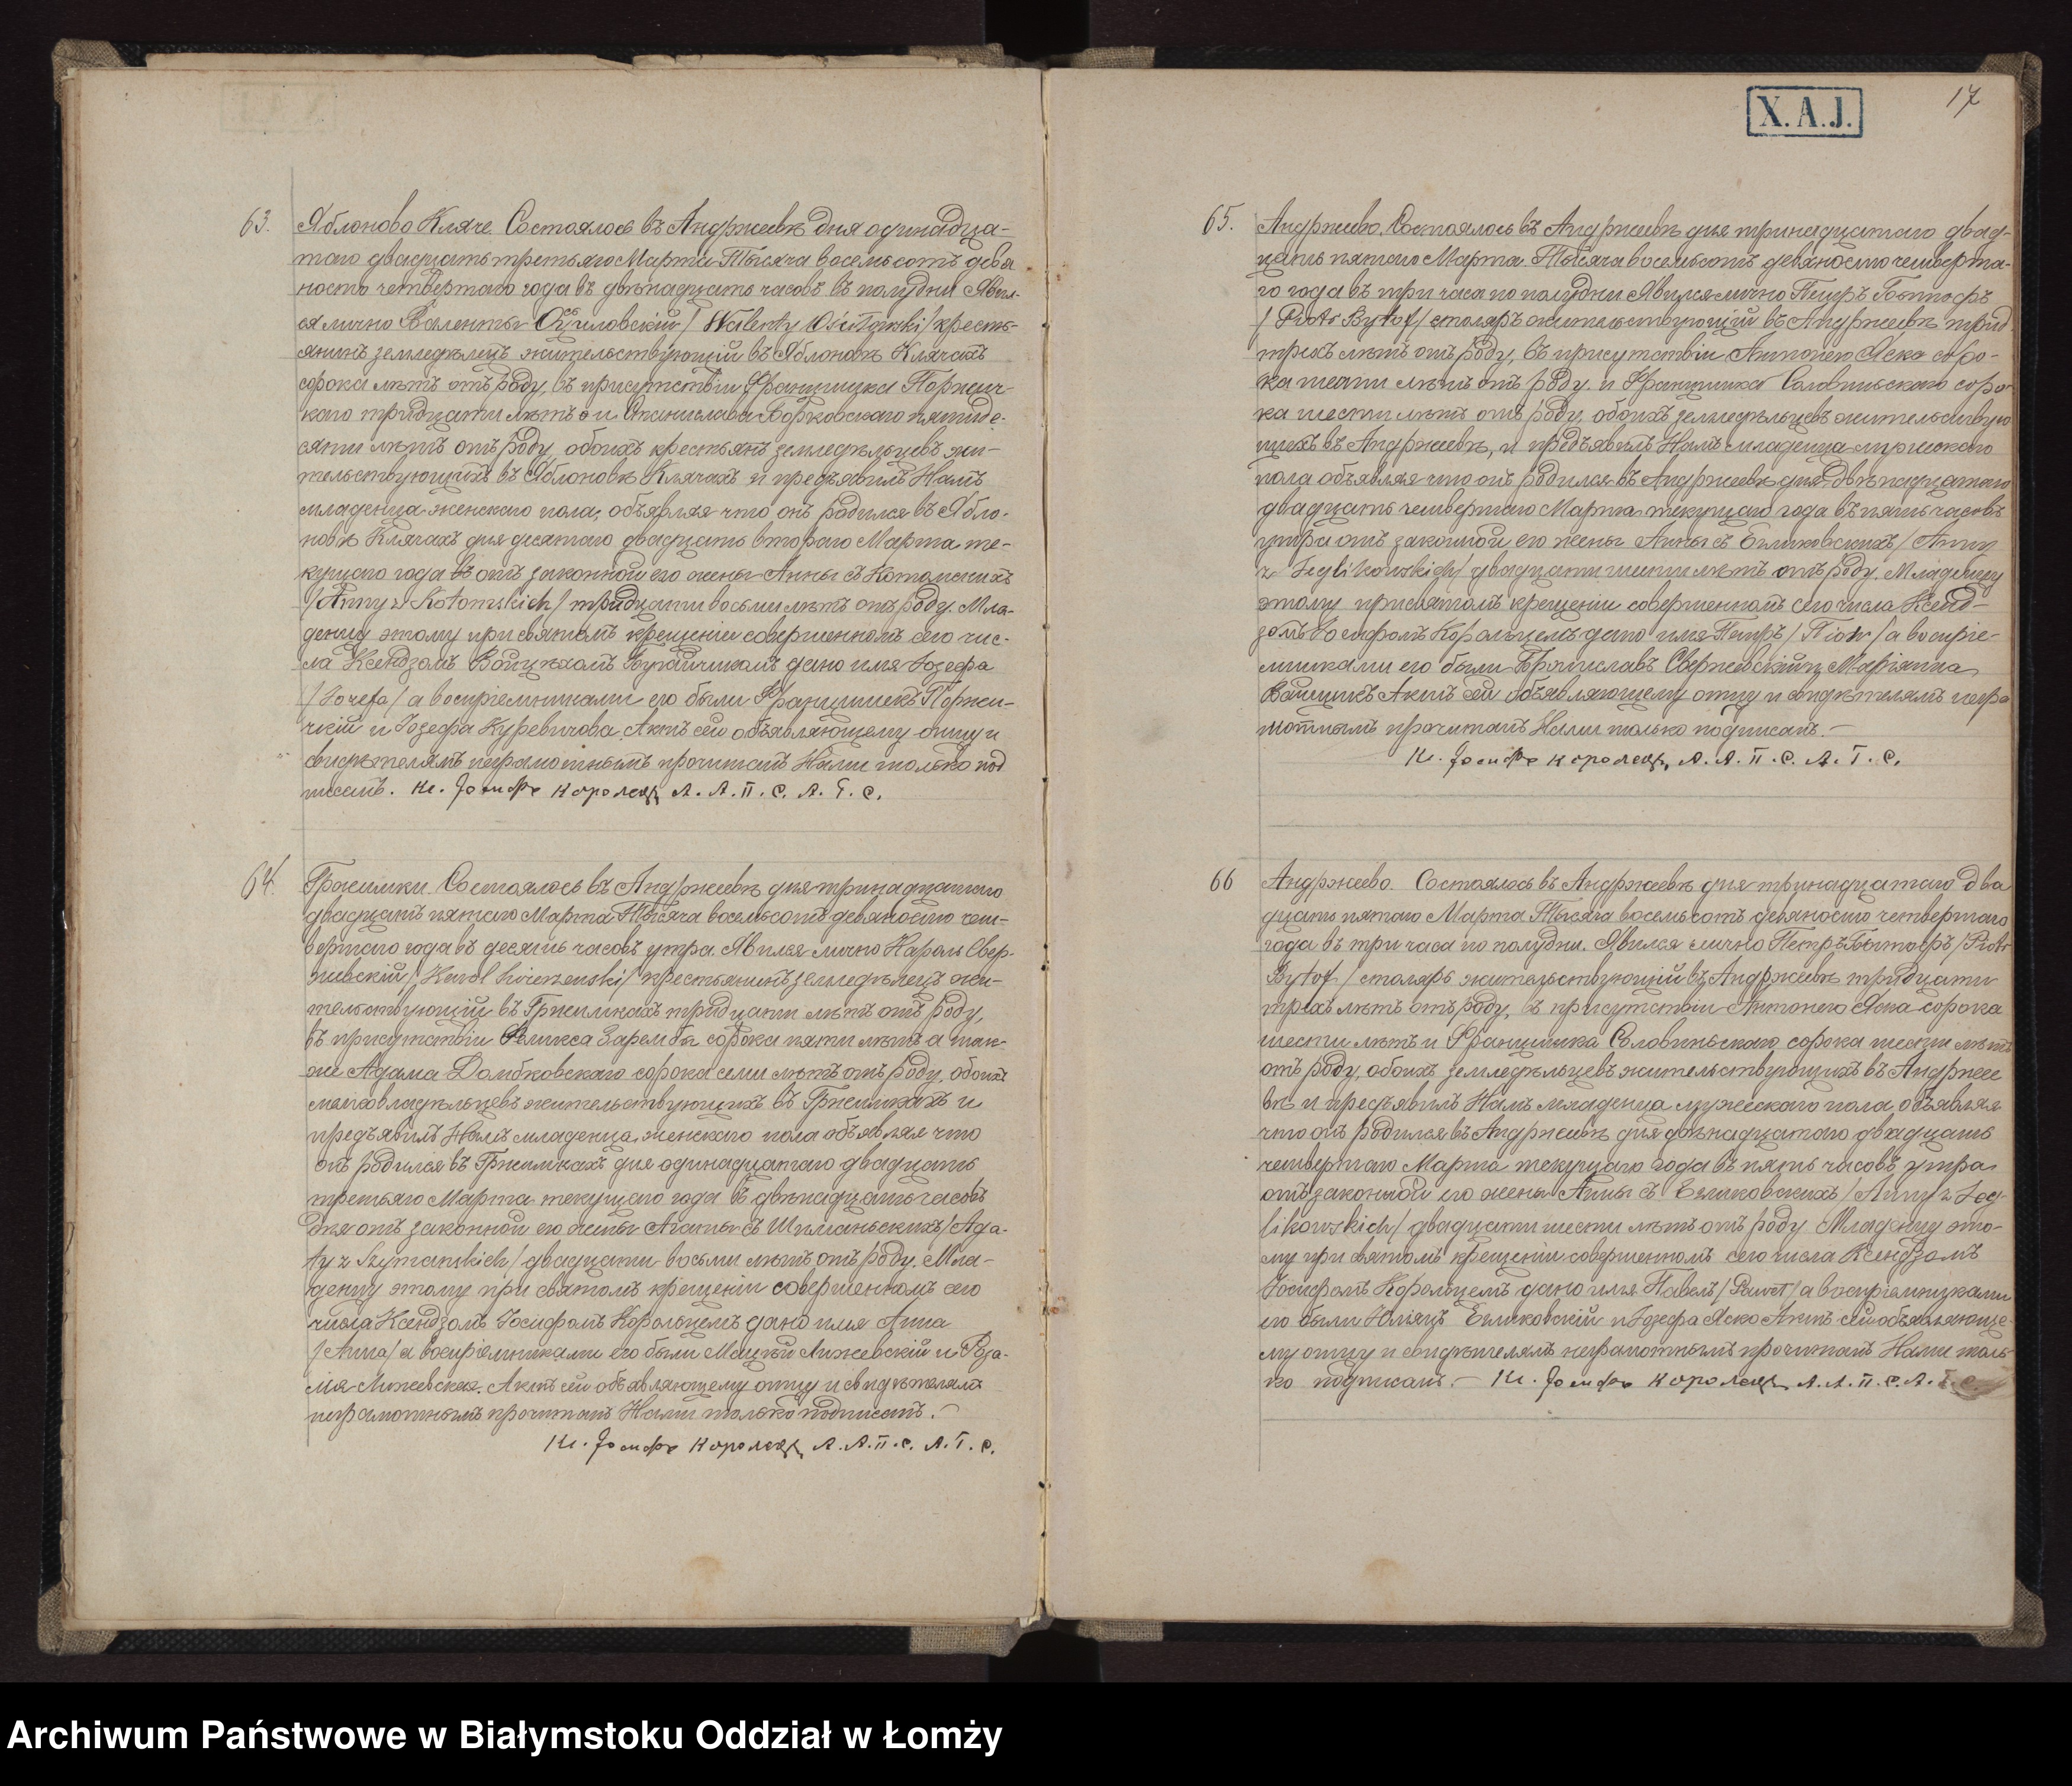 63. Яблоново Кляче. Состоялось въ Андржеевѣ дня одинадца-
таго двадцать третьяго Марта Тысяча восемьсотъ девя
носто четвертаго года въ двѣнадцать часовъ въ полудни Явил-
ся лично Валенты /Walenty / кресть-
янинъ земледѣлецъ жительствующій въ Яблоновѣ Клячахъ
сорока лѣтъ отъ роду, въ присутствіи Францишка
тридцати лѣтъ и Станислава Борковскаго пятиде-
сяти лѣтъ отъ роду, обоихъ крестьянъ земледѣльцевъ жи-
тельствующихъ въ Яблоновѣ Клячахъ и предъявилъ Намъ
младенца женскаго пола, объявляя что онъ родился въ Ябло-
новѣ Клячахъ дня десятаго двадцать втораго Марта те-
кущаго года отъ законной его жены Анны съ Котомскихъ
/Anny z Kotomskich/ тридцати восьми лѣтъ отъ роду. Мла-
денцу этому при святомъ крещеніи совершенномъ сего чис-
ла Ксендзомъ Войцѣхомъ дано имя Іозефа
/Jozefa/ а воспріемниками его были Францишекъ Поржи-
чкій и Іозефа Куревичова. Актъ сей объявляющему отцу и
свидѣтелямъ неграмотнымъ прочитанъ Нами только под
писанъ. Кс. Іосифъ Королецъ А. А. П. С. А. Г. С.
64. Гржимки. Состоялось въ Андржеевѣ дня тринадцатаго
двадцать пятаго Марта Тысяча восемьсотъ девяносто чет-
вертаго года въ десять часовъ утра. Явился лично Кароль Свер-
жевскій /Karol Świerzewski/ крестьянинъ земледѣлецъ жи-
тельствующій въ Гржимкахъ тридцати лѣтъ отъ роду,
въ присутствіи Феликса Зарембы сорока пяти лѣтъ а так-
же Адама Домбковскаго сорока семи лѣтъ отъ роду, обоихъ
владѣльцевъ жительствующихъ въ Гржимкахъ и
предъявилъ Намъ младенца женскаго пола объявляя что
онъ родился въ Гржимкахъ дня одинадцатаго двадцать
третьяго Марта текущаго года въ двѣнадцать часовъ
дня отъ законной его жены Агаты съ Шиманьскихъ /Aga-
ty z Szymanskich/ двадцати восьми лѣтъ отъ роду. Мла-
денцу этому при святомъ крещеніи совершенномъ сего
числа Ксендзомъ Іосифомъ Корольцемъ дано имя Анна
/Anna/ а воспріемниками его были Мацѣй Лижевскій и Роза-
лія Лижевская. Актъ сей объявляющему отцу и свидѣтелямъ
неграмотнымъ прочитанъ Нами только подписанъ.-
Кс. Іосифъ Королецъ А. А. П. С. А. Г. С.
X. A. J.
17
65. Андржеево. Состоялось въ Андржеевѣ дня тринадцатаго двад-
цать пятаго Марта Тысяча восемьсотъ девяносто четверта-
го года въ три часа по полудни Явился лично Петръ Бытофъ
/Piotr Bytof/ столяръ жительствующій въ Андржеевѣ трид
трехъ лѣтъ отъ роду, въ присутствіи Антонего Яско соро-
ка шести лѣтъ отъ роду и Францишка Словиньскаго соро-
ка шести лѣтъ отъ роду, обоихъ земледѣльцевъ жительствую
щихъ въ Андржеевѣ, и предъявилъ Намъ младенца мужескаго
пола объявляя что онъ родился въ Андржеевѣ дня двѣнадцатаго
двадцать четвертаго Марта текущаго года въ пять часовъ
утра отъ законной его жены Анны съ Егликовскихъ /Anny
z Jeglikowskich/ двадцати шести лѣтъ отъ роду. Младенцу
этому при святомъ крещеніи совершенномъ сего числа Ксенд-
зомъ Іосифомъ Корольцемъ дано имя Петръ /Piotr/ а воспріе-
мниками его были Брониславъ Свержевскій и Маріянна
Актъ сей объявляющему отцу и свидѣтелямъ негра
мотнымъ прочитанъ Нами только подписанъ.-
Кс. Іосифъ Королецъ, А. А. П. С. А. Г. С.
66 Андржеево. Состоялось въ Андржеевѣ дня тринадцатаго два
дцать пятаго Марта Тысяча восемьсотъ девяносто четвертаго
года въ три часа по полудни. Явился лично Петръ Бытофъ /Piotr
Bytof/ столяръ жительствующій въ Андржеевѣ тридцати
трехъ лѣтъ отъ роду, въ присутствіи Антонего Яска сорока
шести лѣтъ и Францишка Словиньскаго сорока шести лѣтъ
отъ роду, обоихъ земледѣльцевъ жительствующихъ въ Андржее
вѣ и предъявилъ Намъ младенца мужескаго пола, объявляя
что онъ родился въ Андржеевѣ дня двѣнадцатаго двадцать
четвертаго Марта текущаго года въ пять часовъ утра
отъ законной его жены Анны съ Егликовскихъ /Anny z Jeg-
likowskich/ двадцати шести лѣтъ отъ роду. Младенцу это-
му при святомъ крещеніи совершенномъ сего числа Ксендзомъ
Іосифомъ Корольцемъ дано имя Павелъ /Paweł/ а воспріемниками
его были Юліянъ Егликовскій и Іозефа Яско Актъ сей объявляюще-
му отцу и свидѣтелямъ неграмотнымъ прочитанъ Нами толь-
ко подписанъ.- Кс. Іосифъ Королецъ А. А. П. С. А. Г. С.
Archiwum Państwowe w Białymstoku Oddział w Łomży